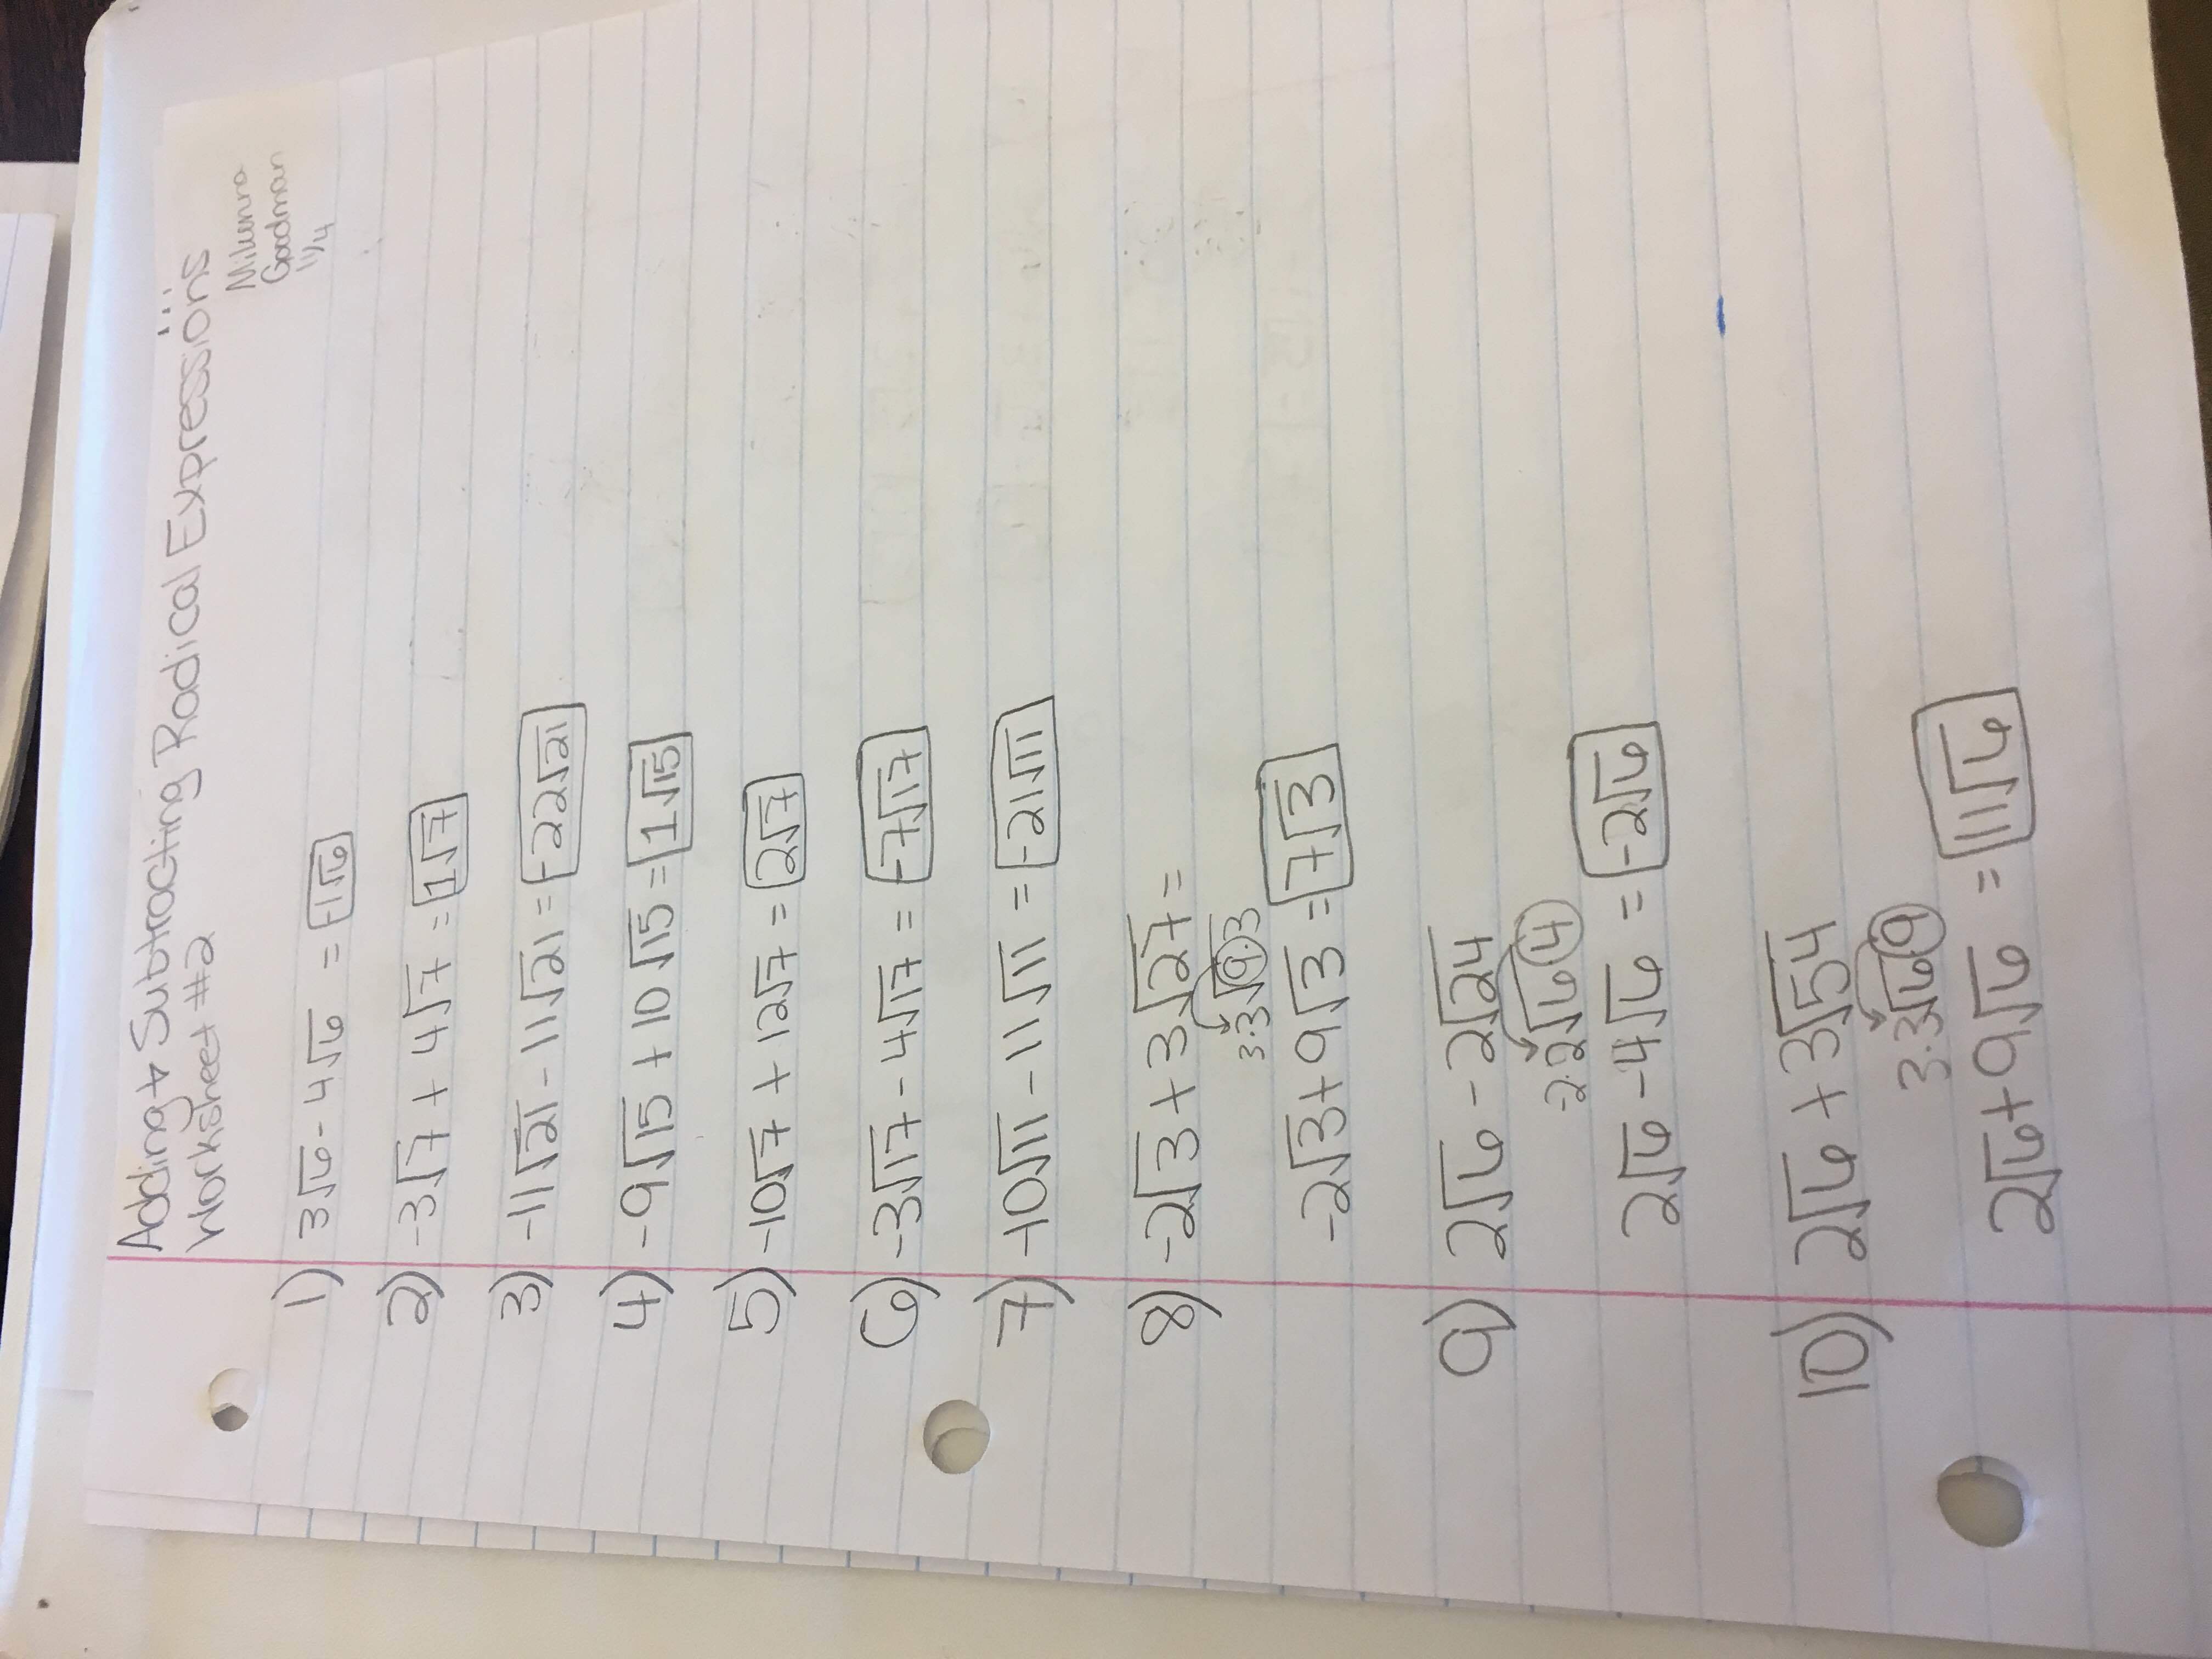 Adding + Subtracting Radical Expressions
Worksheet #2
Goodman
11/4
1) 3√6 - 4√6 = -1√6
2) -3√7 + 4√7 = 1√7
3) -11√21 - 11√21 = -22√21
4) -9√15 + 10√15 = 1√15
5) -10√7 + 12√7 = 2√7
6) -3√17 - 4√17 = -7√17
7) -10√11 - 11√11 = -21√11
8) -2√3 + 3√27 =
3·3√9·3
-2√3 + 9√3 = 7√3
9) 2√6 - 2√24
-2·2√6 4
2√6 - 4√6 = -2√6
10) 2√6 + 3√54
3·3√6 9
2√6 + 9√6 = 11√6